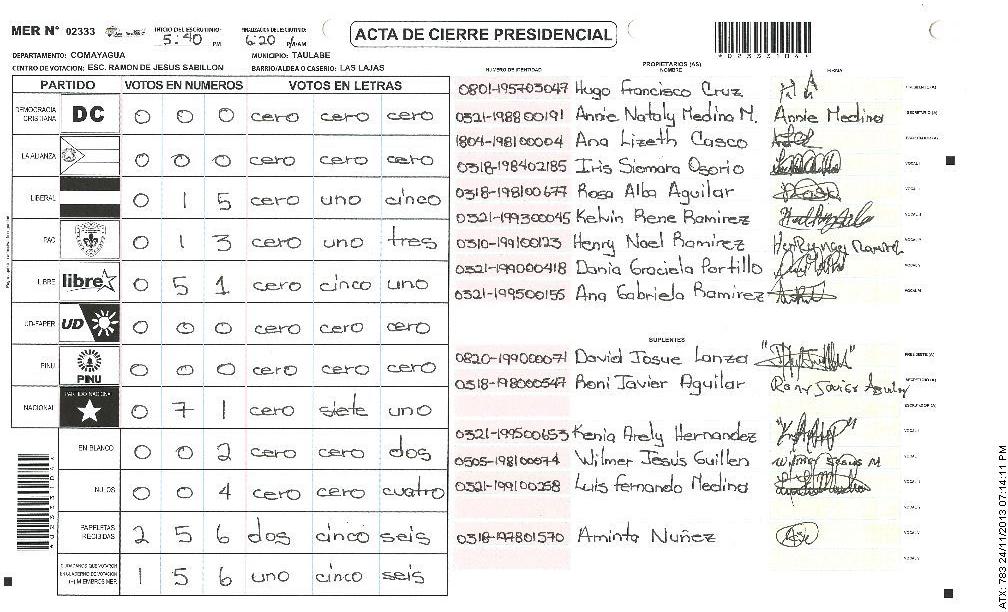 MER Nº 02333 INICIO DEL ESCRUTINIO: 5:40 PM FINALIZACION DEL ESCRUTINIO: 6:20 P/AM
ACTA DE CIERRE PRESIDENCIAL
DEPARTAMENTO: COMAYAGUA MUNICIPIO: TAULABE
CENTRO DE VOTACION: ESC. RAMON DE JESUS SABILLON BARRIO/ALDEA O CASERIO: LAS LAJAS
PARTIDO VOTOS EN NUMEROS VOTOS EN LETRAS
DEMOCRACIA CRISTIANA DC 0 0 0 cero cero cero
LA ALIANZA 0 0 0 cero cero cero
LIBERAL 0 1 5 cero uno cinco
PAC 0 1 3 cero uno tres
LIBRE libre 0 5 1 cero cinco uno
UD-FAPER UD 0 0 0 cero cero cero
PINU PINU 0 0 0 cero cero cero
NACIONAL PARTIDO NACIONAL 0 7 1 cero siete uno
EN BLANCO 0 0 2 cero cero dos
NULOS 0 0 4 cero cero cuatro
PAPELETAS RECIBIDAS 2 5 6 dos cinco seis
CIUDADANOS QUE VOTARON EN CUADERNO DE VOTACION (+) MIEMBROS MER 1 5 6 uno cinco seis
NUMERO DE IDENTIDAD PROPIETARIOS (AS) NOMBRE FIRMA
0801-195703047 Hugo Francisco Cruz PRESIDENTE (A)
0321-198800191 Annie Nataly Medina M. Annie Medina SECRETARIO (A)
1804-198100004 Ana Lizeth Casco ESCRUTADOR (A)
0318-198402185 Iris Siemara Osorio VOCAL I
0318-198100677 Rosa Alba Aguilar VOCAL II
0321-199300045 Kelvin Rene Ramirez VOCAL III
0310-199100123 Henry Noel Ramirez VOCAL IV
0321-199000418 Dania Graciela Portillo VOCAL V
0321-199500155 Ana Gabriela Ramirez VOCAL VI
SUPLENTES
0820-199000071 David Josue Lanza PRESIDENTE (A)
0318-198000547 Roni Javier Aguilar Rony Javier Aguilar SECRETARIO (A)
ESCRUTADOR (A)
0321-199500653 Kenia Arely Hernandez VOCAL I
0505-198100074 Wilmer Jesus Guillen Wilmer Jesus M VOCAL II
0321-199100258 Luis Fernando Medina VOCAL III
VOCAL IV
0318-197801570 Aminta Nuñez VOCAL V
VOCAL VI
ATX: 783 24/11/2013 07:14:11 PM